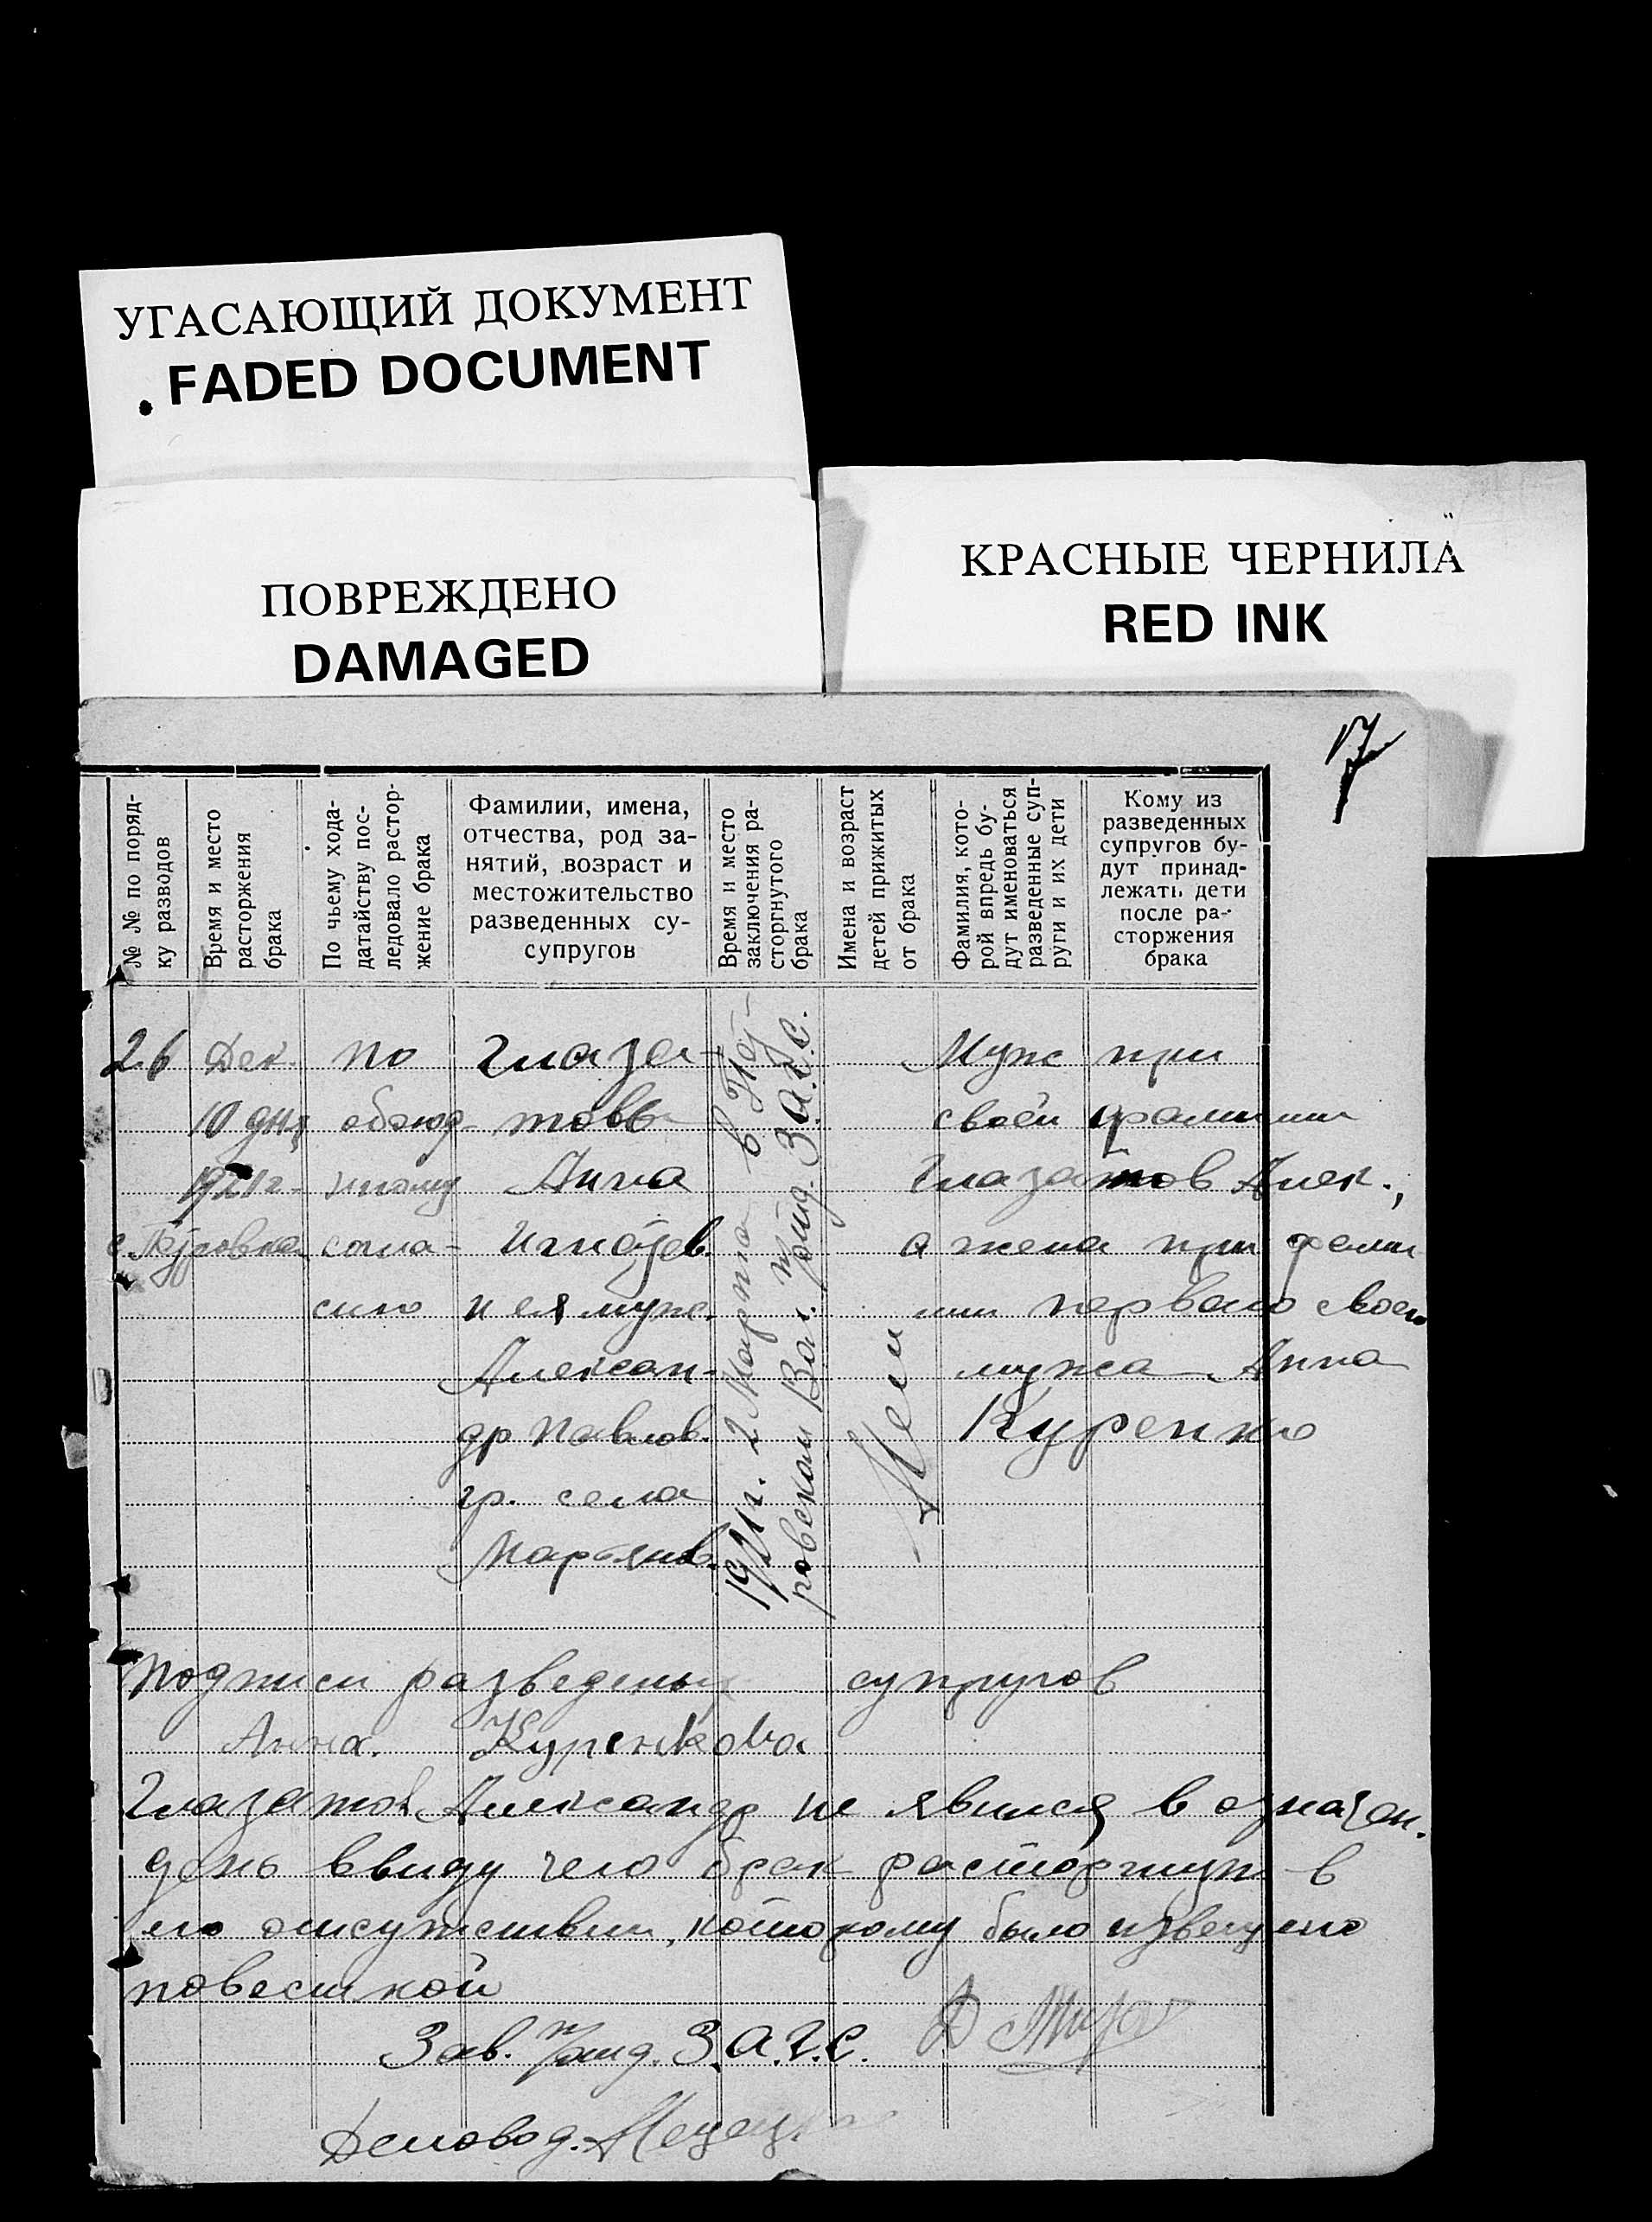 УГАСАЮЩИЙ ДОКУМЕНТ
FADED DOCUMENT
ПОВРЕЖДЕНО
DAMAGED
КРАСНЫЕ ЧЕРНИЛА
RED INK
7
№ № по поряд-
ку разводов
Время и место
расторжения
брака
По чьему хода-
датайству пос-
ледовало растор-
жение брака
Фамилии, имена,
отчества, род за-
нятий, возраст и
местожительство
разведенных су-
супругов
Время и место
заключения ра-
сторгнутого
брака
Имена и возраст
детей прижитых
от брака
Фамилия, кото-
рой впредь бу-
дут именоваться
разведенные суп-
руги и их дети
Кому из
разведенных
супругов бу-
дут принад-
лежать дети
после ра-
сторжения
брака
26
Дек.
10 дня
1921 г.
по
обоюд-
ному
согла-
сию
Глаза-
товы
Анна
Игнатьев.
и ея муж.
Алексан-
др Павлов.
гр. села
1921 г. 2 Марта в Пет-
ровском Вол. подд. З.А.Г.С.
Нет
Муж при
своей фамилии
Глазатов Алек.,
а жена при фами
лии первого своего
мужа Анна
Куренко
Подписи разведеных супругов
Анна. Куренкова
Глазатов Александр не явился в означен.
день ввиду чего брак расторгнут в
его отсутствии, которому было извещено
повесткой
Зав. подд. З.А.Г.С.
Деловод.